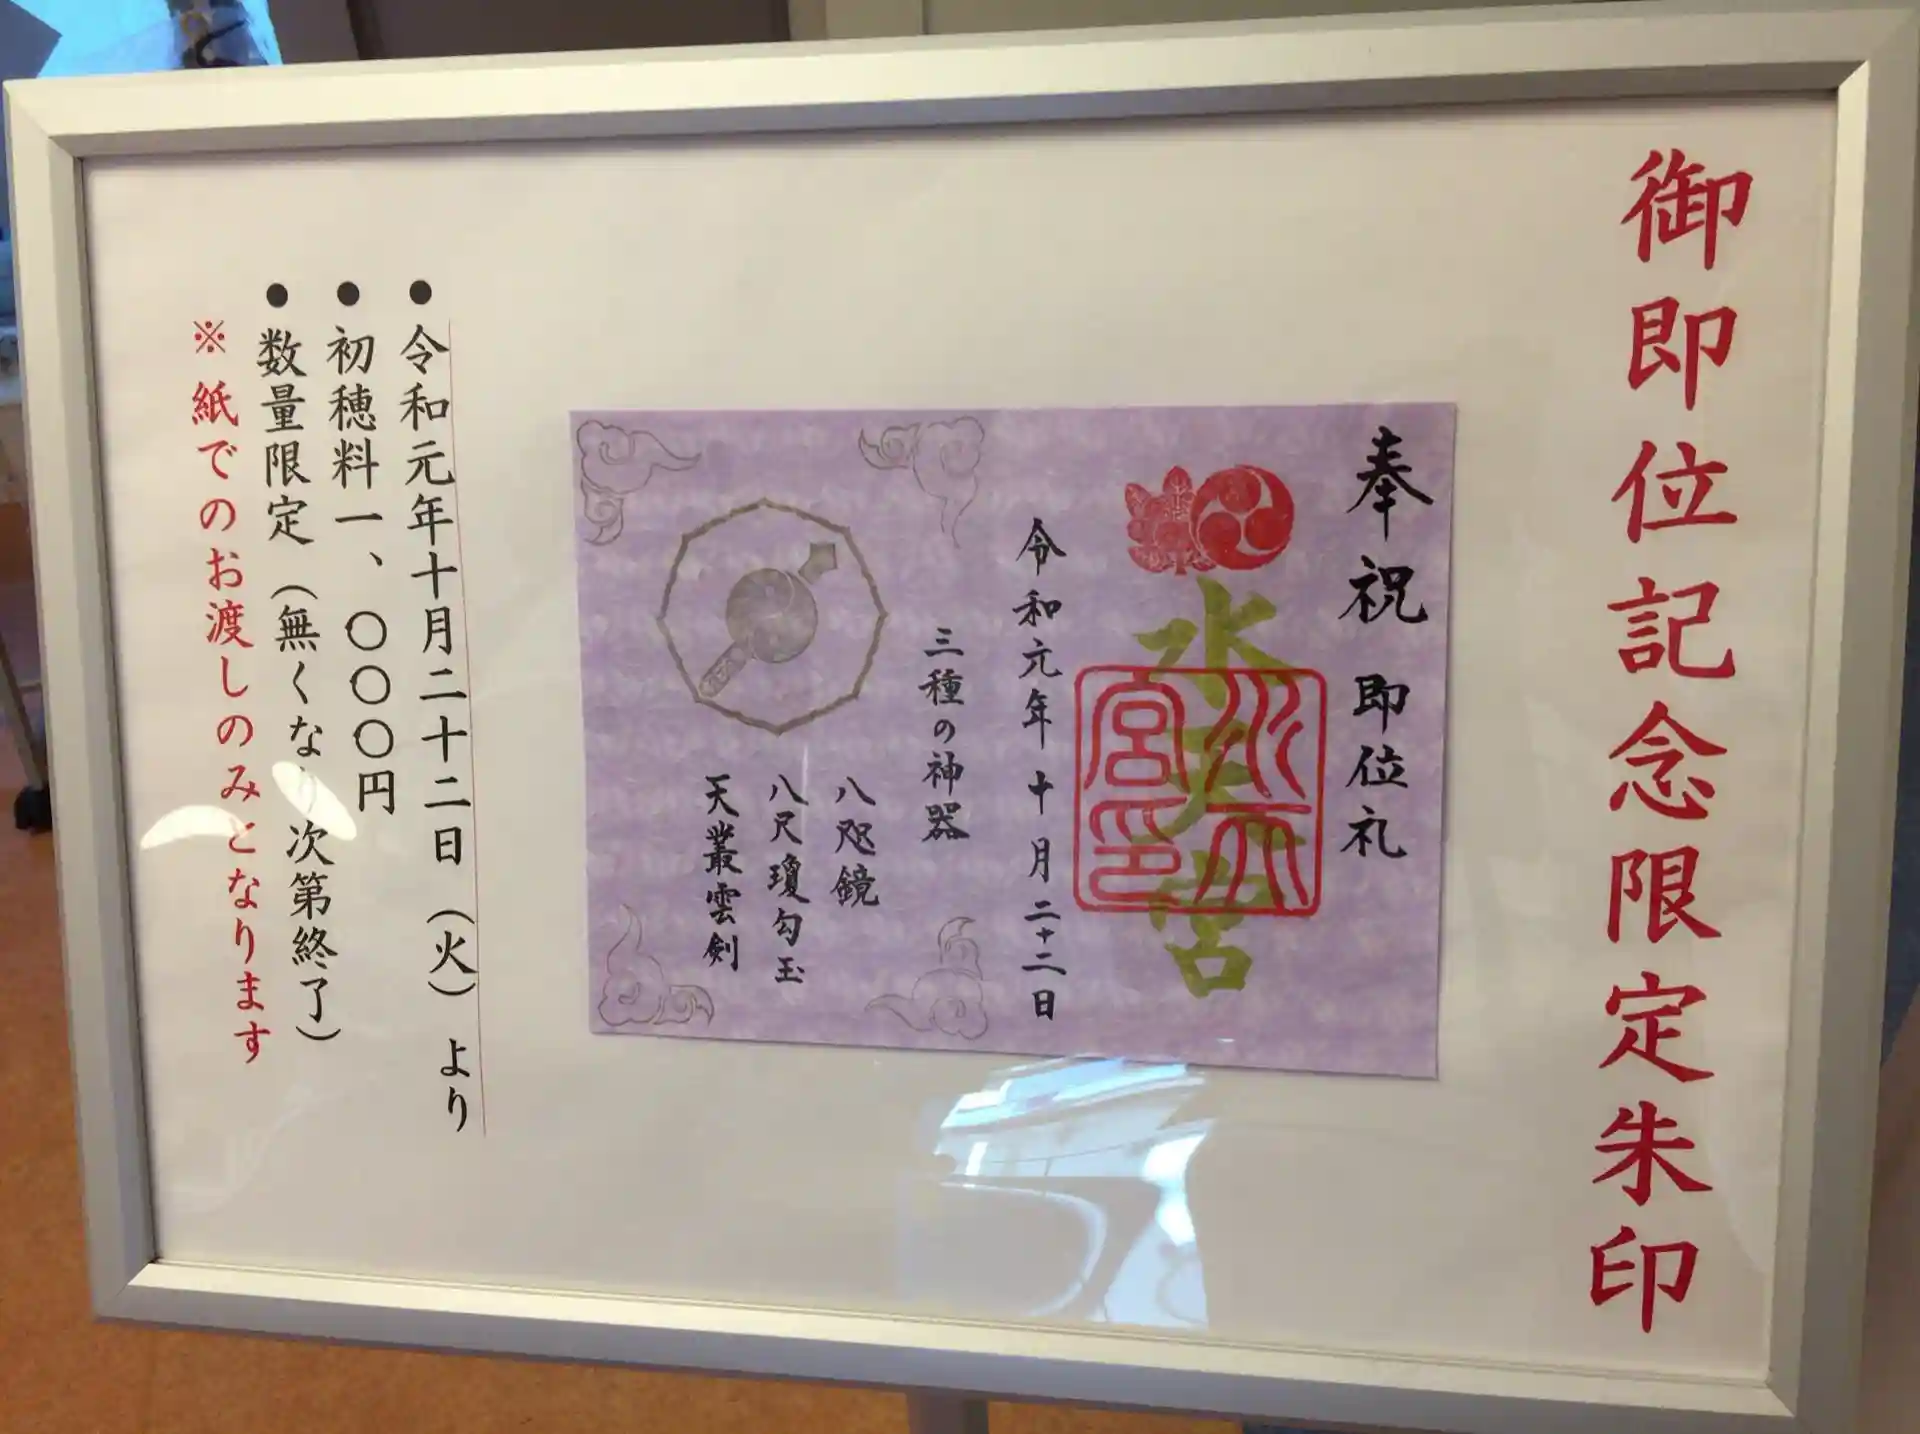 御即位記念限定朱印
奉祝 即位礼
水天宮
水天宮印
令和元年十月二十二日
三種の神器
八咫鏡
八尺瓊勾玉
天叢雲剣
●令和元年十月二十二日（火）より
●初穂料一、〇〇〇円
●数量限定（無くなり次第終了）
※紙でのお渡しのみとなります